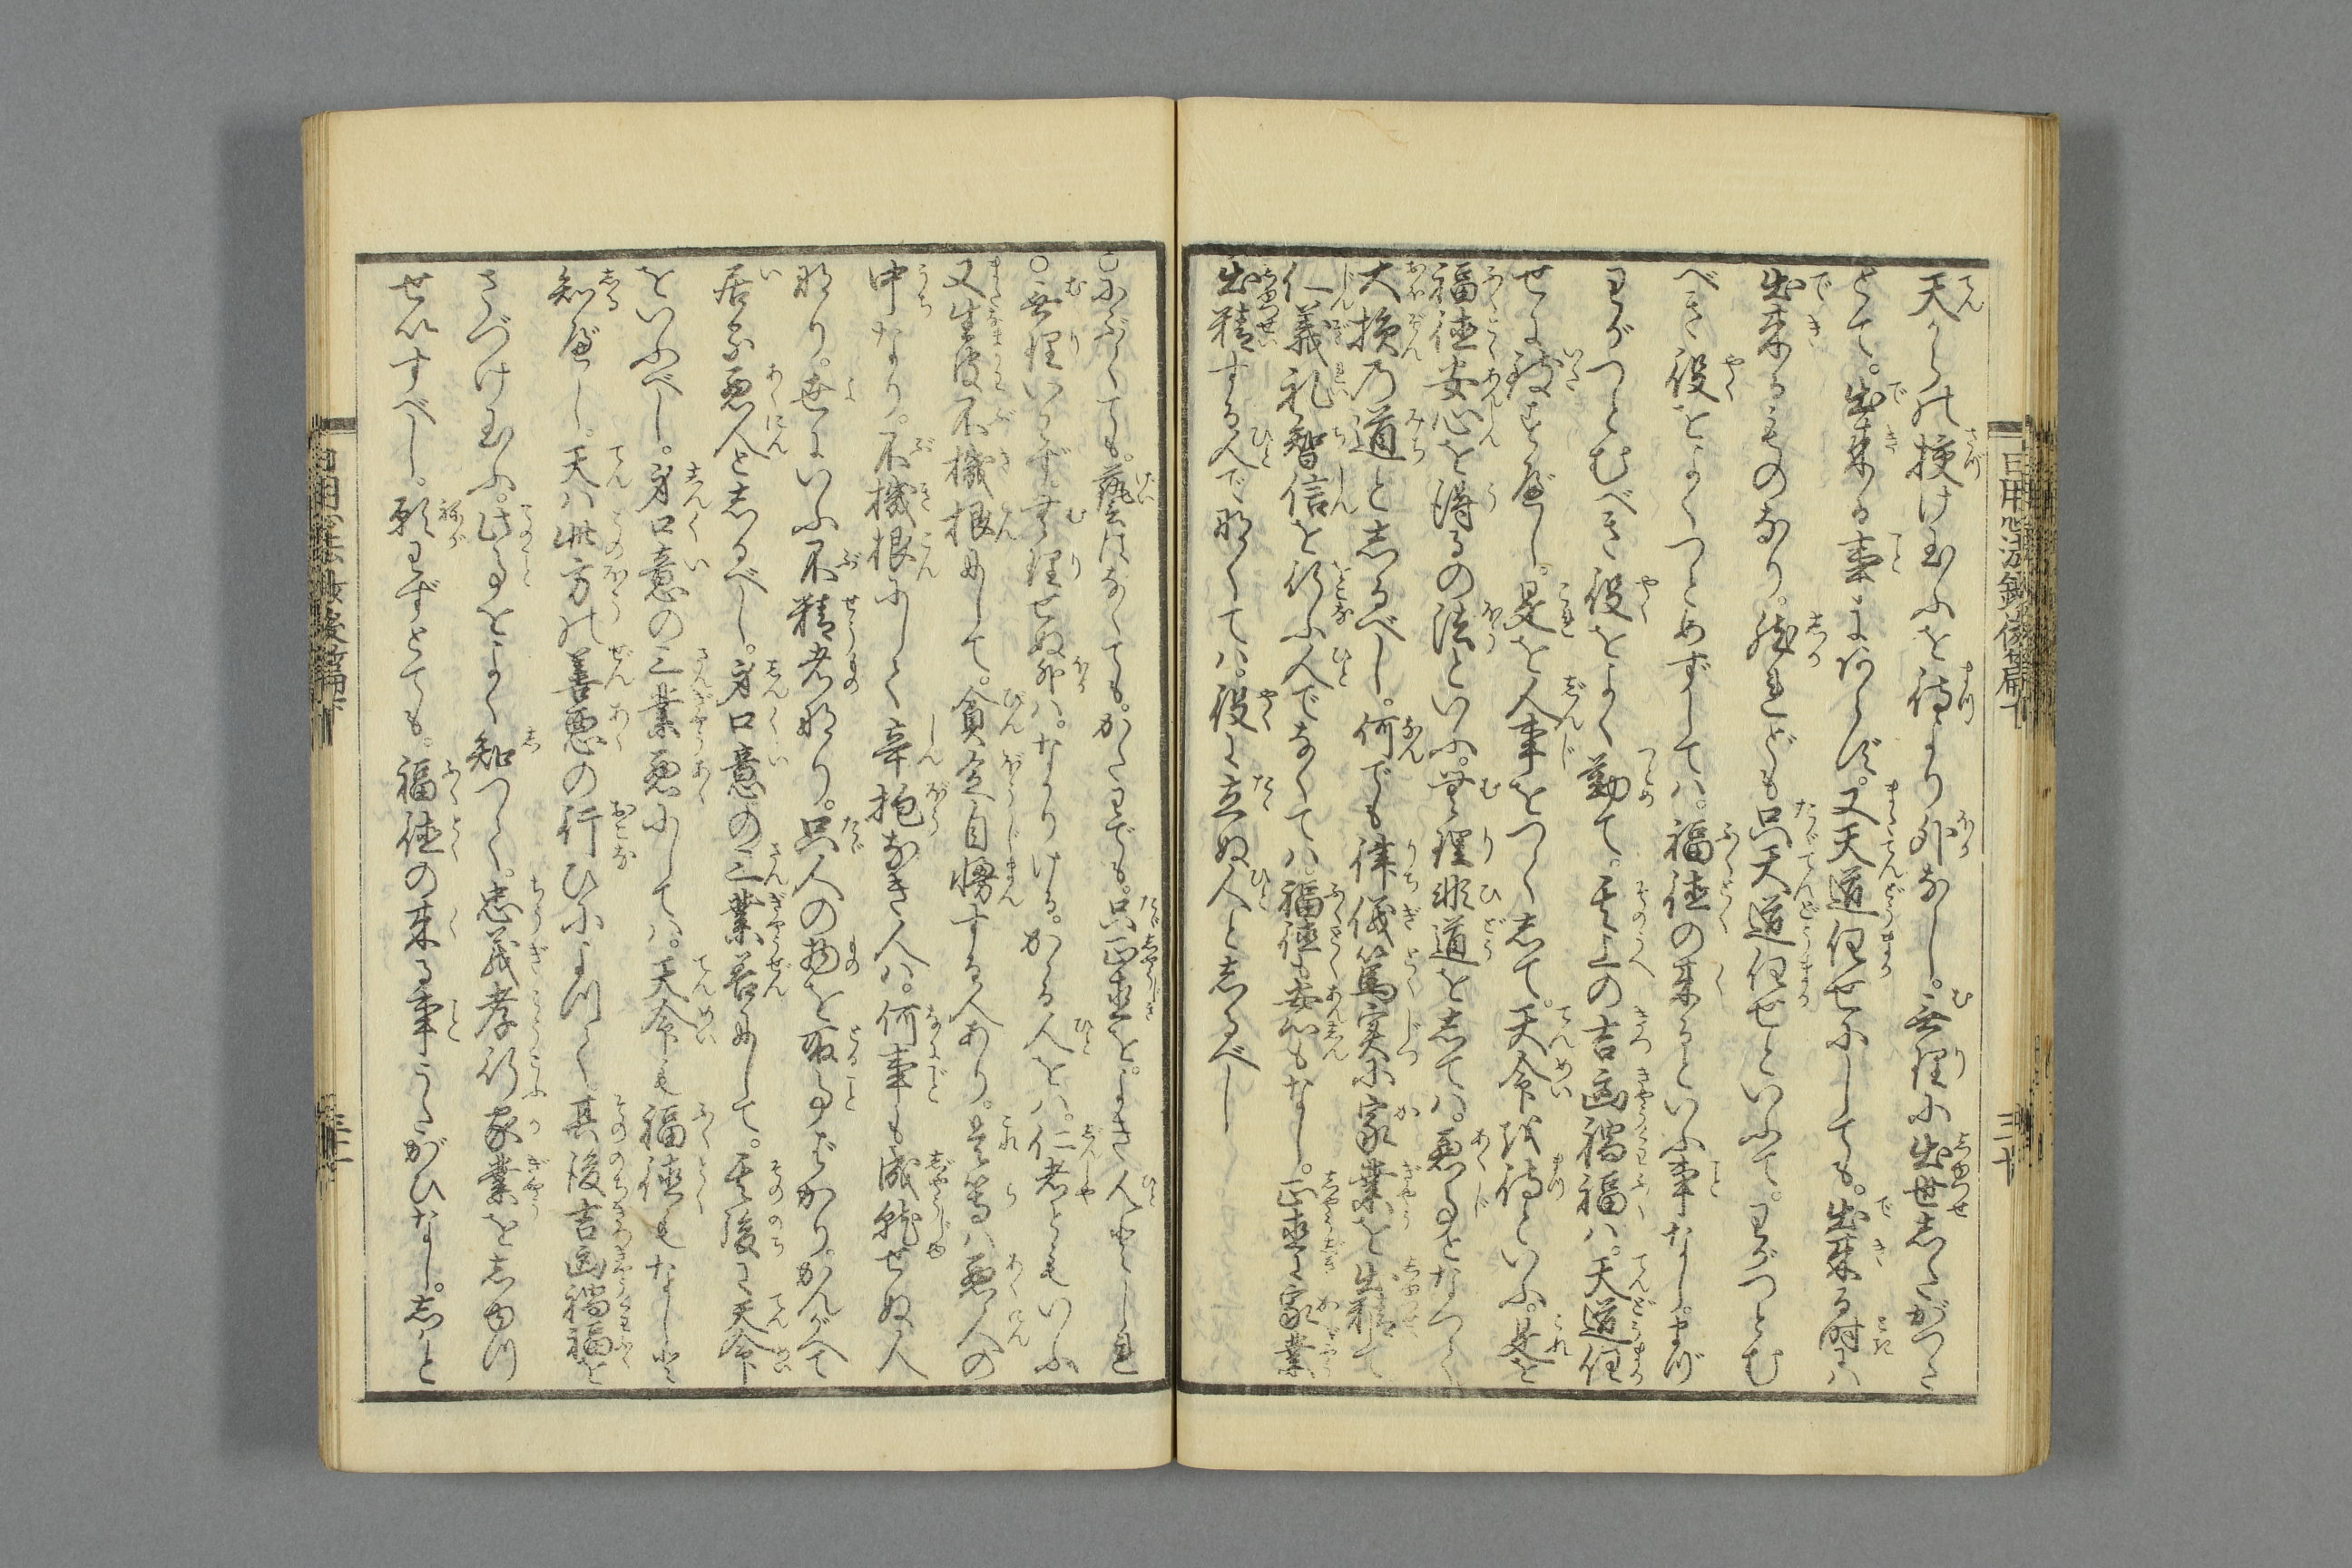 天から授け玉ふを待より外なし。無理に出世したがつた
とて。出来る事にあらず。又天道任せにしても。出来る時には
出来るものなり。然れども只天道任せといふて。わがつとむ
べき役をよくつとめずしては。福徳の来るといふ事なし。まづ
わがつとむべき役をよく勤て。其上の吉凶禍福は。天道任
せに致すべし。是を人事をつくして。天命を待といふ。是を
福徳安心を得るの法といふ。無理非道をしては。悪事となつて
大損の道としるべし。何でも律儀篤実に家業を出精して
仁義礼智信を行ふ人でなくては。福徳も安心もなし。正直に家業
出精する人で無くては。役に立ぬ人としるべし
○にぶくても。藝はなくても。かたわでも。只正直を。よき人としれ
○無理いはず。無理せぬ外は。なかりける。かかる人をは。仁者ともいふ
又生得不機根にして。貧乏自慢する人あり。是等は悪人の
中なり。不機根にして辛抱なき人は。何事も成就せぬ人
なり。世にいふ不精者なり。只人の物を取る事ばかり。かんがへて
居る悪人としるべし。身口意の三業善にして。其後に天命
をいふべし。身口意の三業悪にしては。天命も福徳もなしと
知べし。天は此方の善悪の行ひによつて。其後吉凶禍福を
さづけ玉ふ。此事をよく知つて。忠義孝行家業を志ゆつ
せいすべし。願はずとても。福徳の来る事うたがひなし。しかと